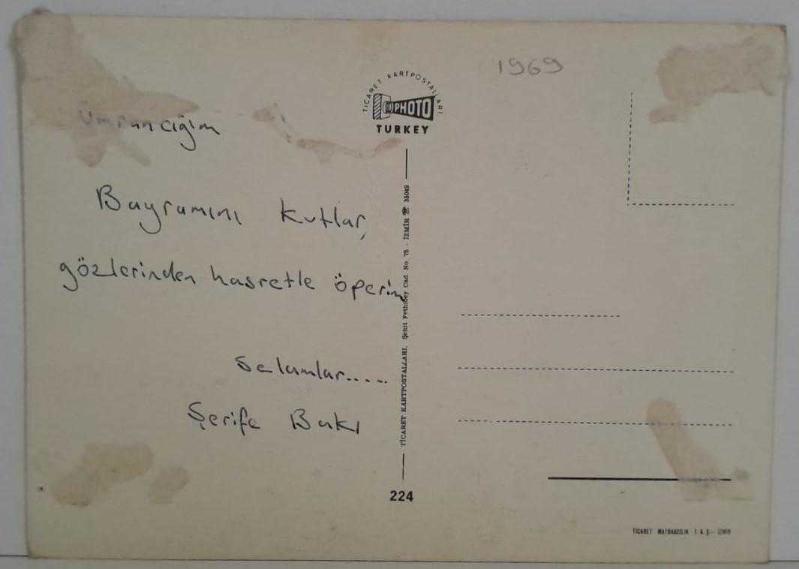 Ümrancığım
Bayramını kutlar,
gözlerinden hasretle öperim
Selamlar.....
Şerife Bakı
TİCARET KARTPOSTALLARI
PHOTO
TURKEY
TİCARET KARTPOSTALLARI, Şehit Fethibey Cad. No. 75 - İZMİR
224
1969
TİCARET MATBAACILIK T.A.Ş. - İZMİR